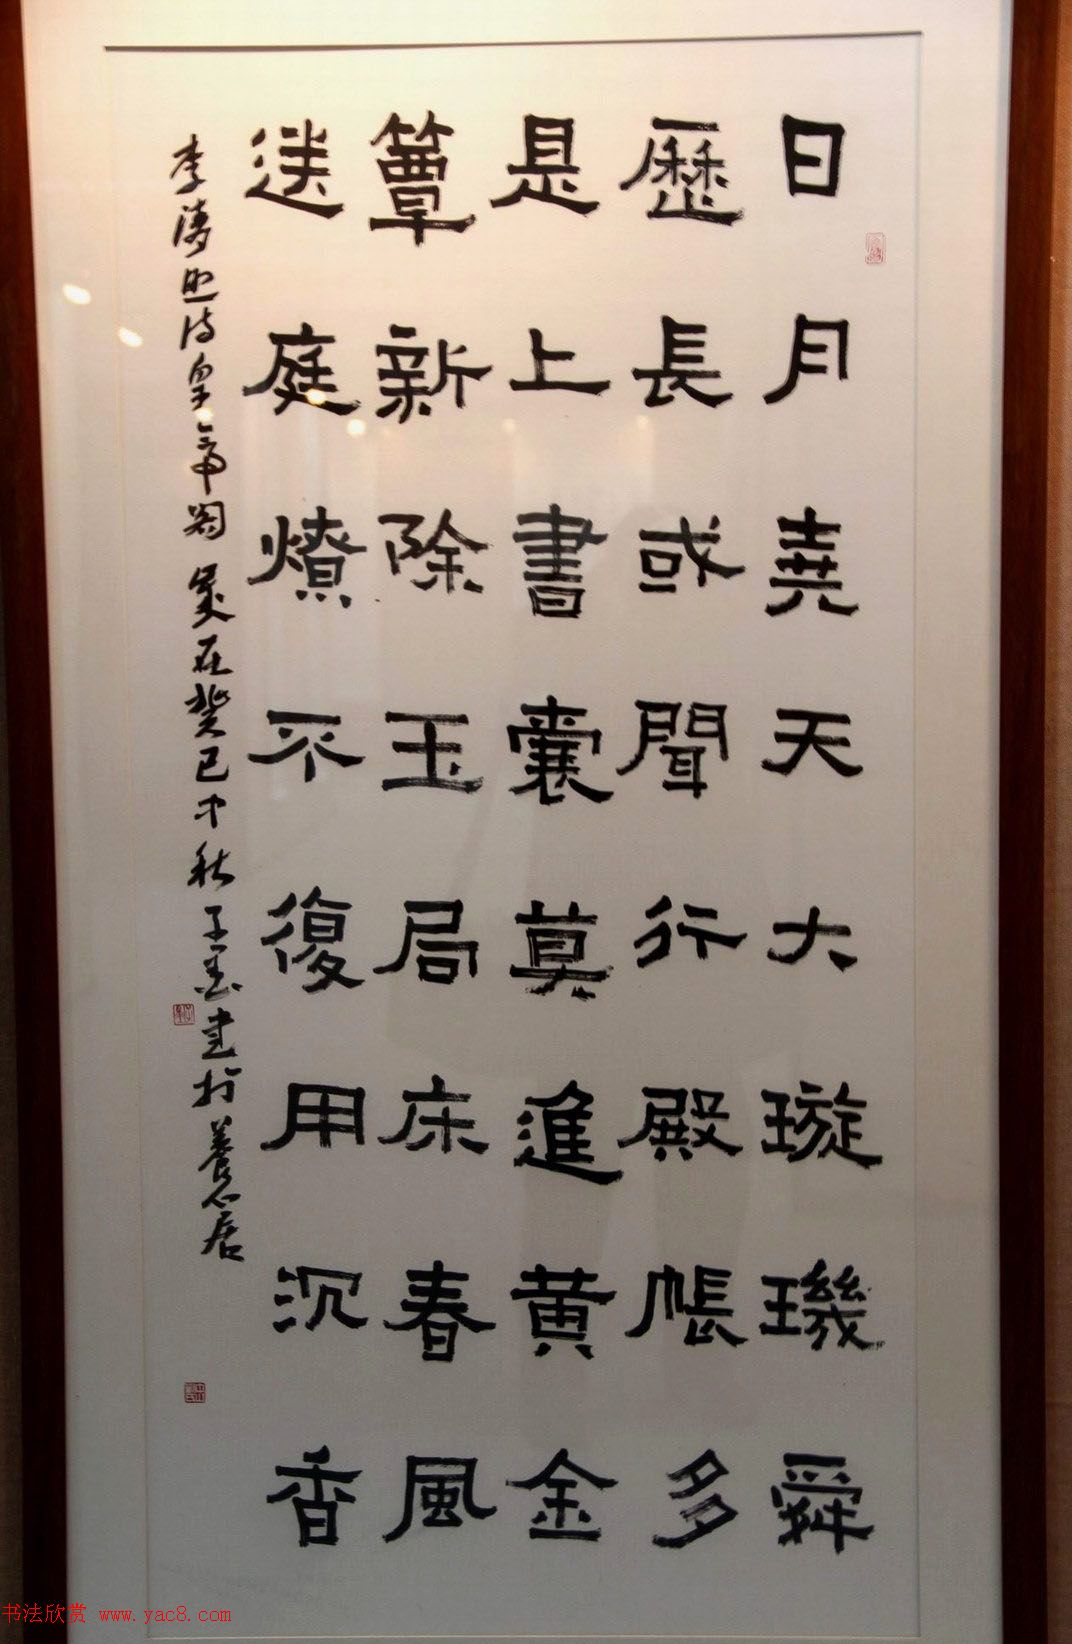 日月堯天大璇璣舜
歷長或聞行殿帳多
是上書囊莫進黃金
簟新除玉局床春風
送庭燎不復用沉香
李清照詩皇帝閣 歲在癸巳中秋子墨書於養心居
书法欣赏 www.yac8.com